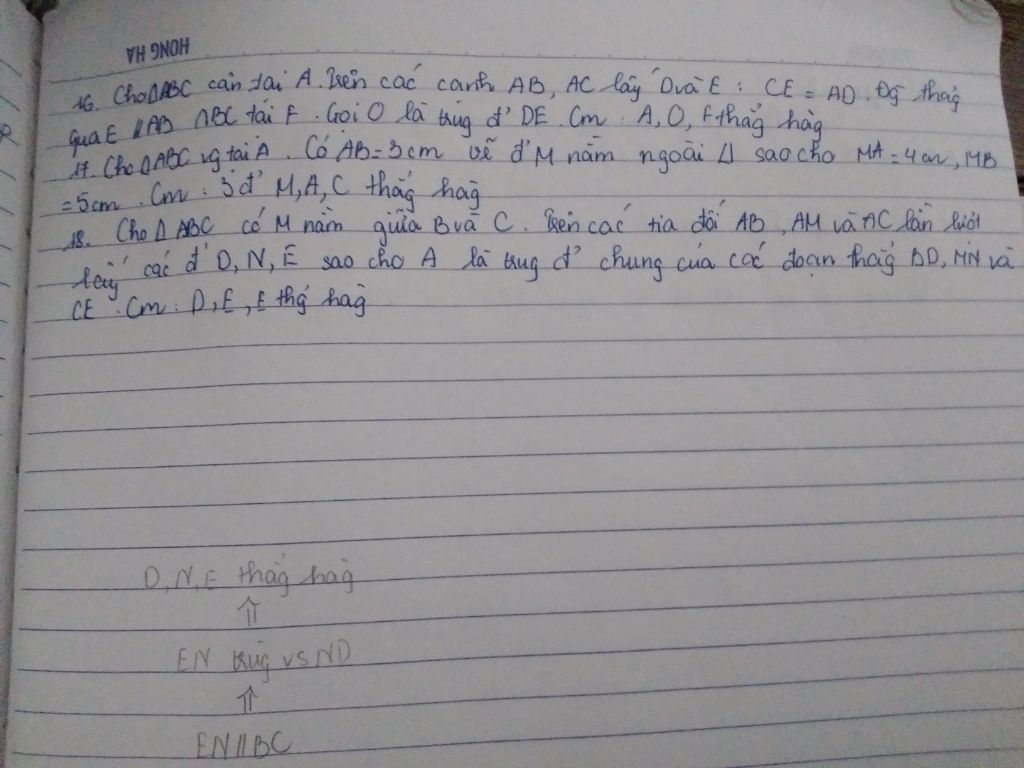 HONG HA
16. ChoΔABC cân tại A. Trên các cạnh AB, AC lấy D và E : CE = AD. Đg thẳg
qua E // AB ∩BC tại F. Gọi O là trug đ' DE. Cm : A, O, F thẳg hàg
17. Cho ΔABC vg tại A. Có AB = 3cm vẽ đ' M nằm ngoài Δ sao cho MA = 4cm, MB
= 5cm. Cm : 3 đ' M, A, C thẳg hàg
18. Cho Δ ABC có M nằm giữa B và C. Trên các tia đối AB, AM và AC lần lượt
lấy các đ' D, N, E sao cho A là trug đ' chung của các đoạn thẳg BD, MN và
CE. Cm : D, E, E thg' hàg
D, N, E thẳg hàg
⇑
EN trùg vs ND
⇑
EN // BC